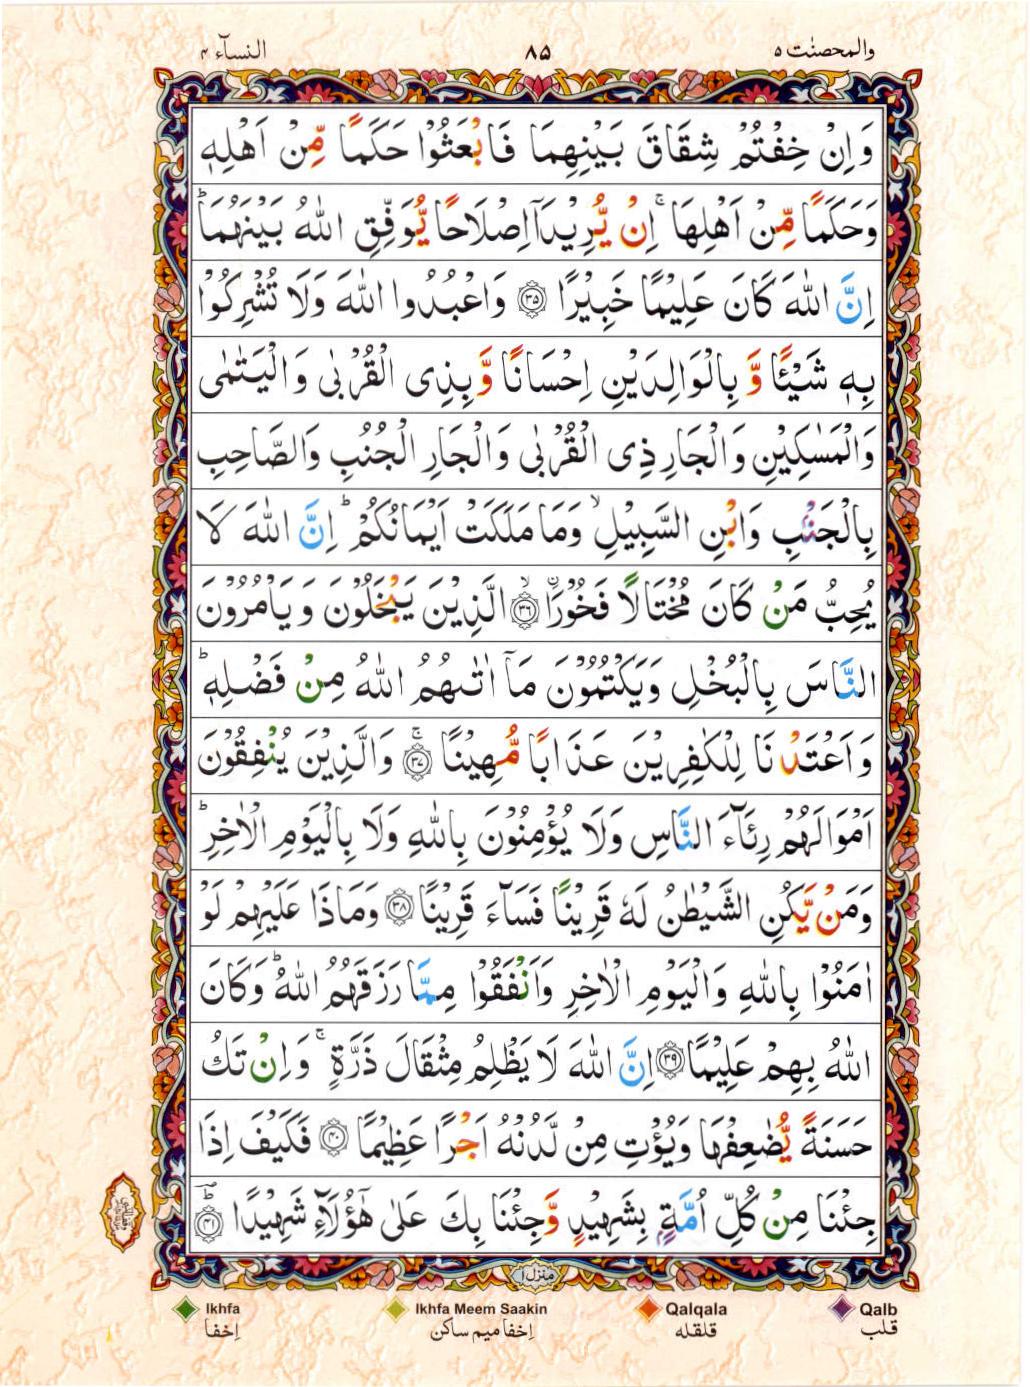 والمحصنٰت ۵
۸۵
النسآء ۴
وَاِنْ خِفْتُمْ شِقَاقَ بَيْنِهِمَا فَابْعَثُوْا حَكَمًا مِّنْ اَهْلِهٖ
وَحَكَمًا مِّنْ اَهْلِهَا ۚ اِنْ يُّرِيْدَاۤ اِصْلَاحًا يُّوَفِّقِ اللّٰهُ بَيْنَهُمَا ؕ
اِنَّ اللّٰهَ كَانَ عَلِيْمًا خَبِيْرًا ﴿۳۵﴾ وَاعْبُدُوا اللّٰهَ وَلَا تُشْرِكُوْا
بِهٖ شَيْـًٔا وَّ بِالْوَالِدَيْنِ اِحْسَانًا وَّبِذِى الْقُرْبٰى وَالْيَتٰمٰى
وَالْمَسٰكِيْنِ وَالْجَارِ ذِى الْقُرْبٰى وَالْجَارِ الْجُنُبِ وَالصَّاحِبِ
بِالْجَنْۢبِ وَابْنِ السَّبِيْلِ ۙ وَمَا مَلَكَتْ اَيْمَانُكُمْ ؕ اِنَّ اللّٰهَ لَا
يُحِبُّ مَنْ كَانَ مُخْتَالًا فَخُوْرًا ۙ﴿۳۶﴾ الَّذِيْنَ يَبْخَلُوْنَ وَيَاْمُرُوْنَ
النَّاسَ بِالْبُخْلِ وَيَكْتُمُوْنَ مَاۤ اٰتٰىهُمُ اللّٰهُ مِنْ فَضْلِهٖ ؕ
وَاَعْتَدْنَا لِلْكٰفِرِيْنَ عَذَابًا مُّهِيْنًا ۚ﴿۳۷﴾ وَالَّذِيْنَ يُنْفِقُوْنَ
اَمْوَالَهُمْ رِئَآءَ النَّاسِ وَلَا يُؤْمِنُوْنَ بِاللّٰهِ وَلَا بِالْيَوْمِ الْاٰخِرِ ؕ
وَمَنْ يَّكُنِ الشَّيْطٰنُ لَهٗ قَرِيْنًا فَسَآءَ قَرِيْنًا ﴿۳۸﴾ وَمَاذَا عَلَيْهِمْ لَوْ
اٰمَنُوْا بِاللّٰهِ وَالْيَوْمِ الْاٰخِرِ وَاَنْفَقُوْا مِمَّا رَزَقَهُمُ اللّٰهُ ؕ وَكَانَ
اللّٰهُ بِهِمْ عَلِيْمًا ﴿۳۹﴾ اِنَّ اللّٰهَ لَا يَظْلِمُ مِثْقَالَ ذَرَّةٍ ۚ وَاِنْ تَكُ
حَسَنَةً يُّضٰعِفْهَا وَيُؤْتِ مِنْ لَّدُنْهُ اَجْرًا عَظِيْمًا ﴿۴۰﴾ فَكَيْفَ اِذَا
جِئْنَا مِنْ كُلِّ اُمَّةٍۭ بِشَهِيْدٍ وَّجِئْنَا بِكَ عَلٰى هٰٓؤُلَآءِ شَهِيْدًا ؕ﴿۴۱﴾
منزل ۱
Ikhfa
Ikhfa Meem Saakin
Qalqala
Qalb
اِخفا
اِخفا میم ساکن
قلقله
قلب